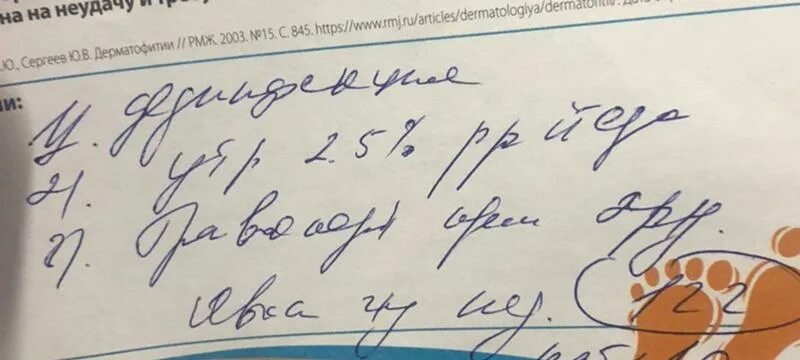 на на неудачу и
.Ю., Сергеев Ю.В. Дерматофитии // РМЖ. 2003. №15. С. 845. https://www.rmj.ru/articles/dermatologiya/dermatofitii/.
ии:
1). дезинфекция
2). утр 2.5% рр йода
3). Травокорт крем
явка чз нед. 122